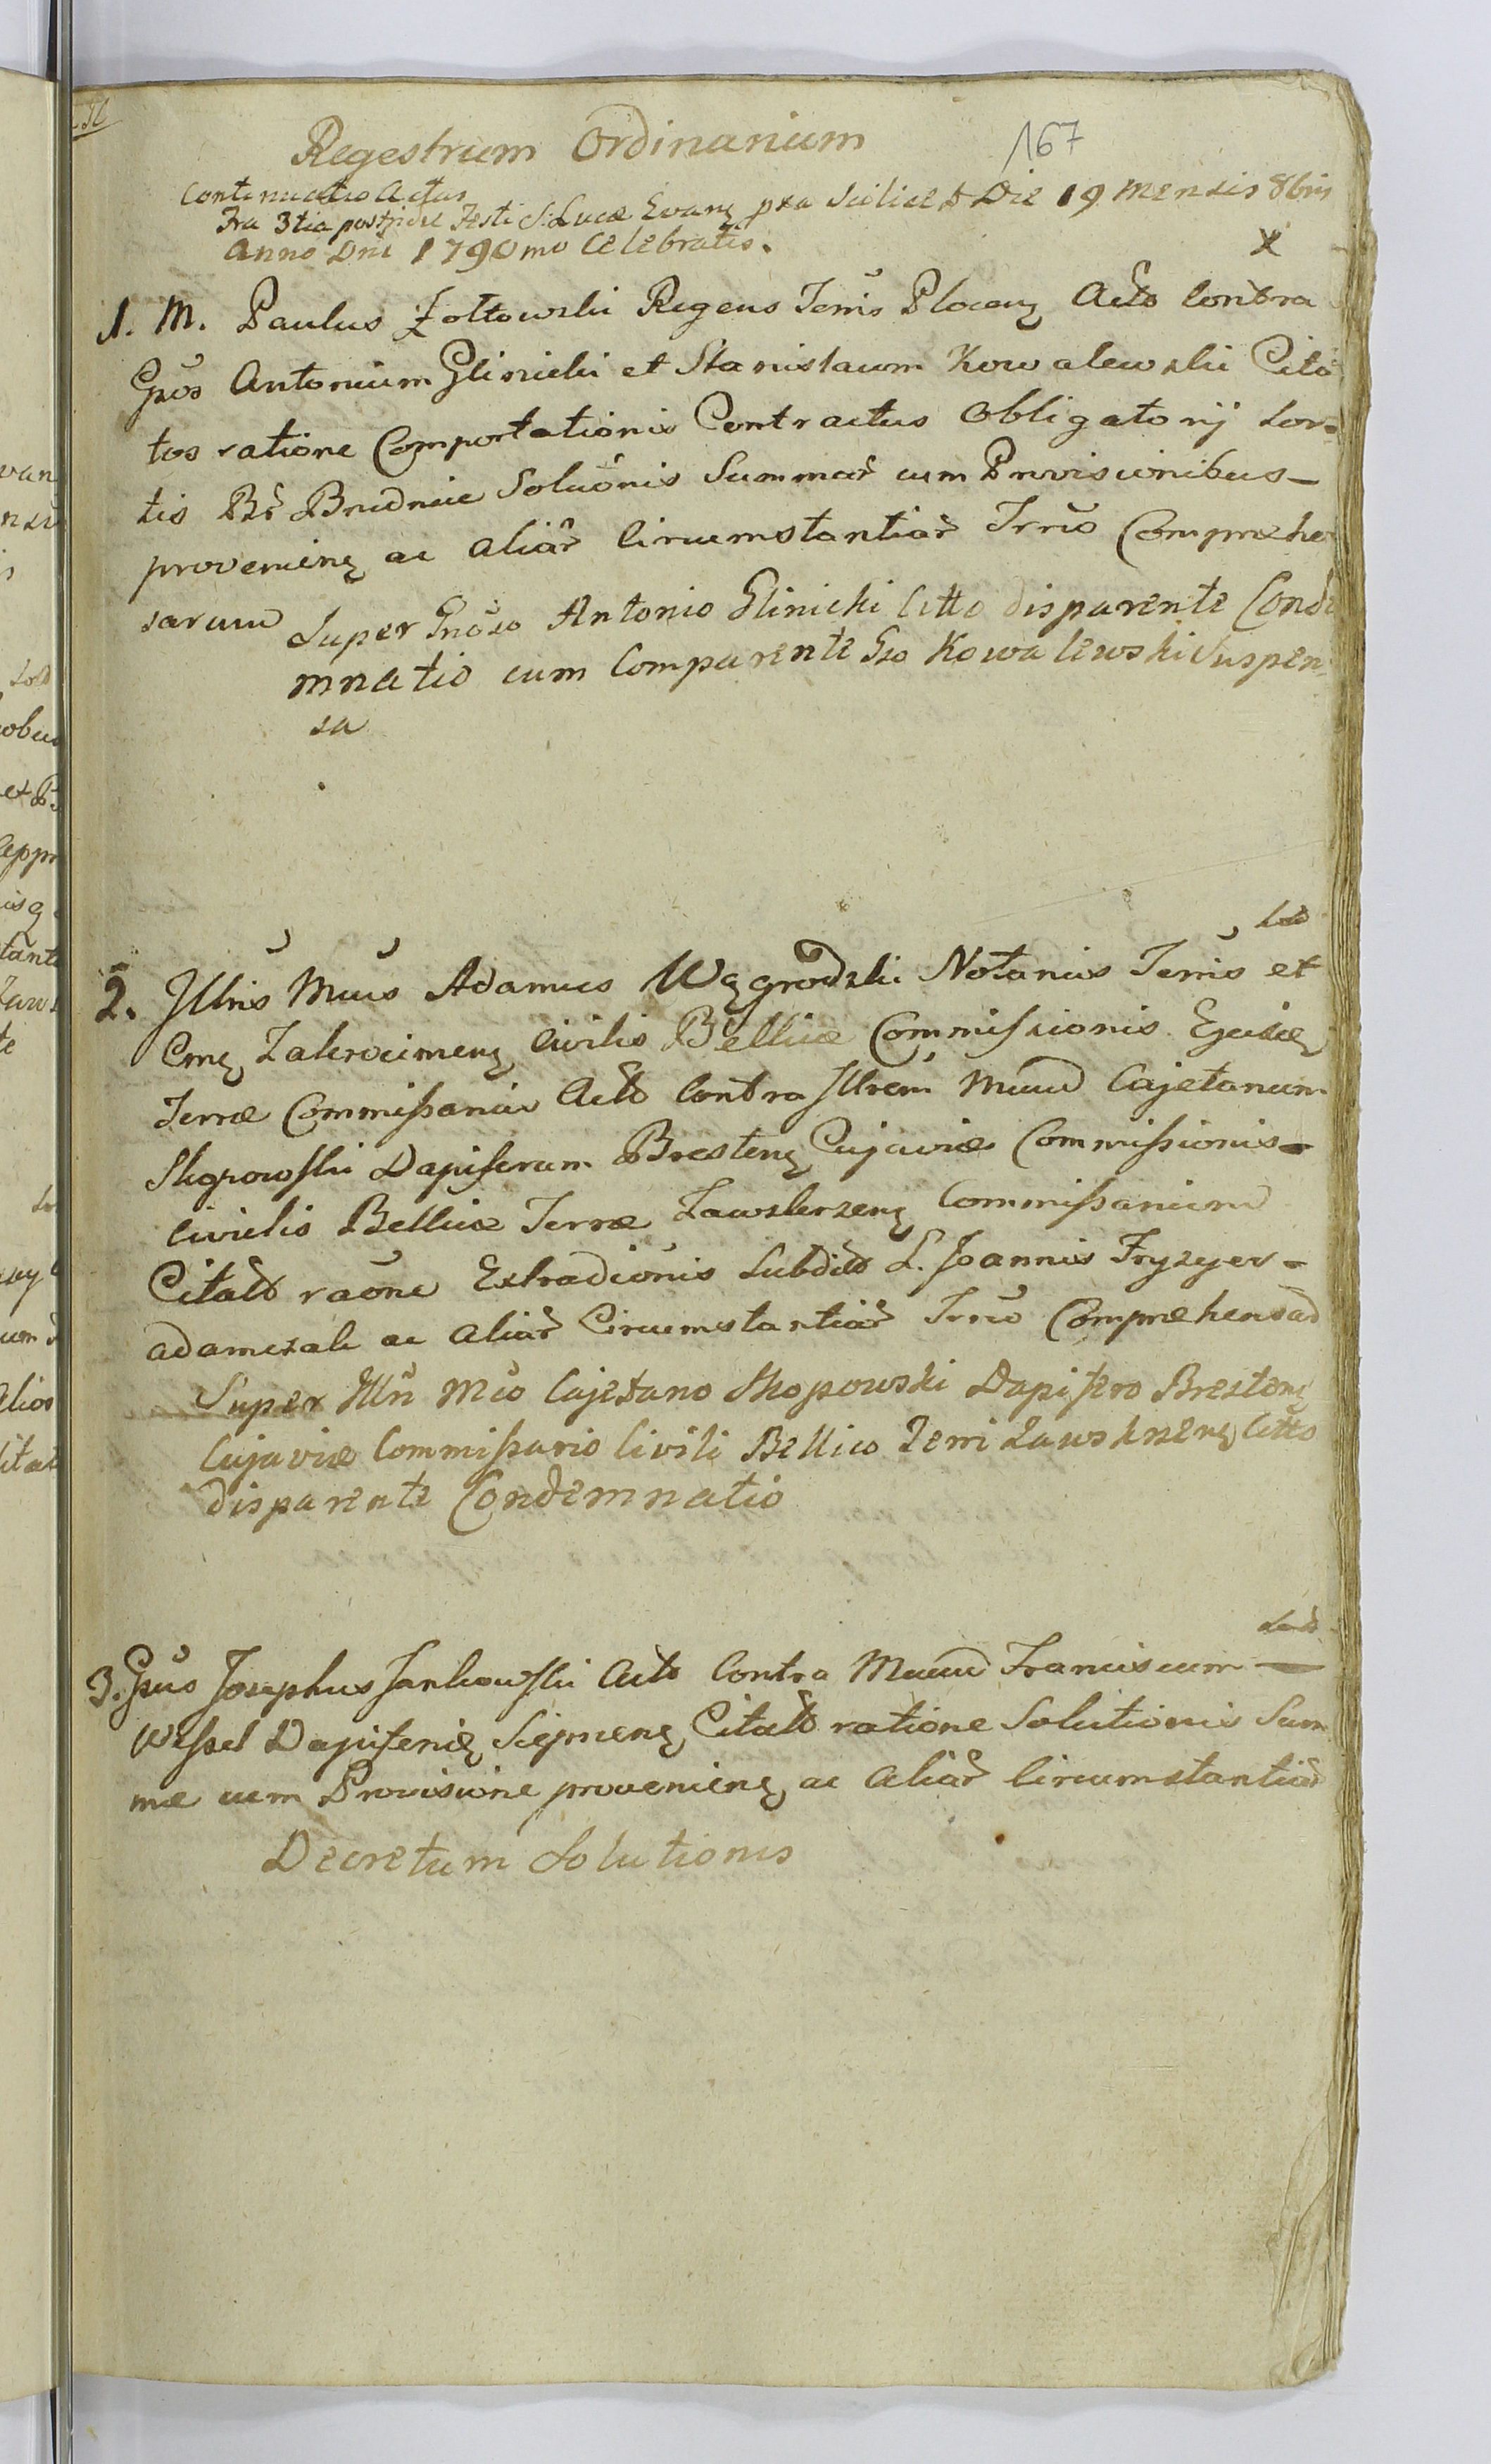 167
Regestrum Ordinarium
Continuatio Actus
Fra 3tia post pridie Festi S. Lucæ Evang pxa Scilicet Die 19 Mensis 8bris
Anno Dni 1790mo Celebratis.
x
1. M. Paulus Żołtowski Regens Terris Plocen Acto Contra
Gsos Antonium Glinicki et Stanislaum Kowalewski Cita
tos ratione Comportationis Contractus Obligatorij Sor=
tis Br Brudnice Soluonis Summar cum Provisionibus
provenien ac aliar Circumstantiar Trrio Compræhen
sarum
Super Gnoso Antonio Glinicki Citto disparente Conde
mnatio cum Comparente Gso Kowalewski Suspen
sa
2. Illris Mcus Adamus Węgrodzki Notarius Terris et
Cn Zakrocimen Civilis Bellicæ Commissionis Ejusdem
Terræ Commissarius Acto Contra Illrem Mcum Cajetanum
Skopowski Dapiferum Bresten Cujaviæ Commissionis
Civilis Bellicæ Terræ Zawskrzen Commissarium
Citato raone Extradionis Subdito L. Joannis Fryzyer
adamczak ac aliar Circumstantiar Trrio Compræhensar
Super Illri Mco Cajetano Skopowski Dapifero Bresten
Cujaviæ Commissario Civili Bellico Terri Zawskrzen Citto
disparente Condemnatio
3. Gsus Josephus Jankowski Acto Contra Mcum Franciscum
Wessel Dapiferid Sierpnen Citato ratione Solutionis Sum
mæ cum Provisione provenien ac aliar Circumstantiar
Decretum Solutionis